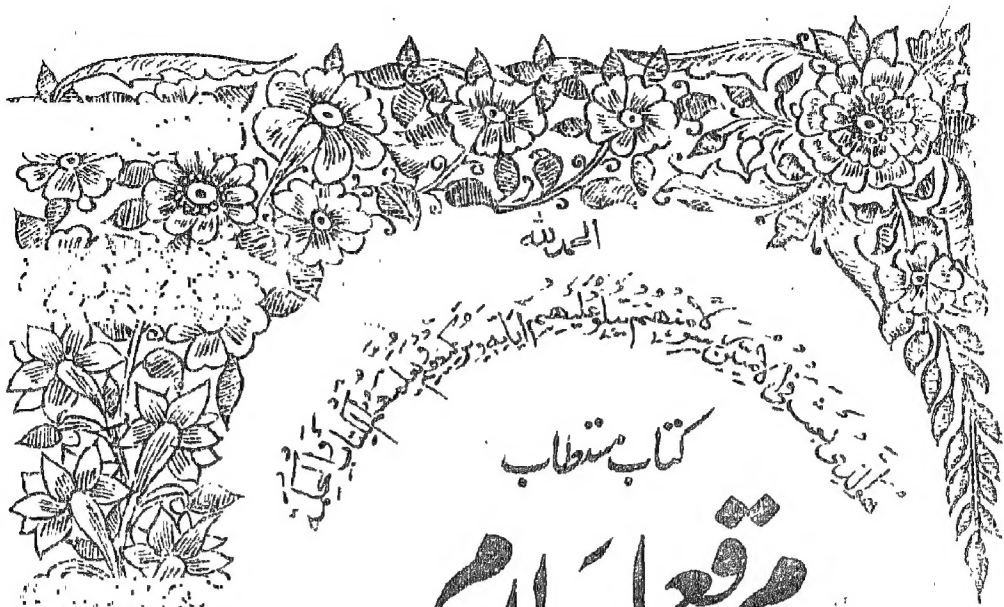 الحمد للہ
هو الذی بعث فی الامیین رسولا منهم یتلو علیهم آیاته ویزکیهم ویعلمهم الکتاب والحکمة
کتاب مستطاب